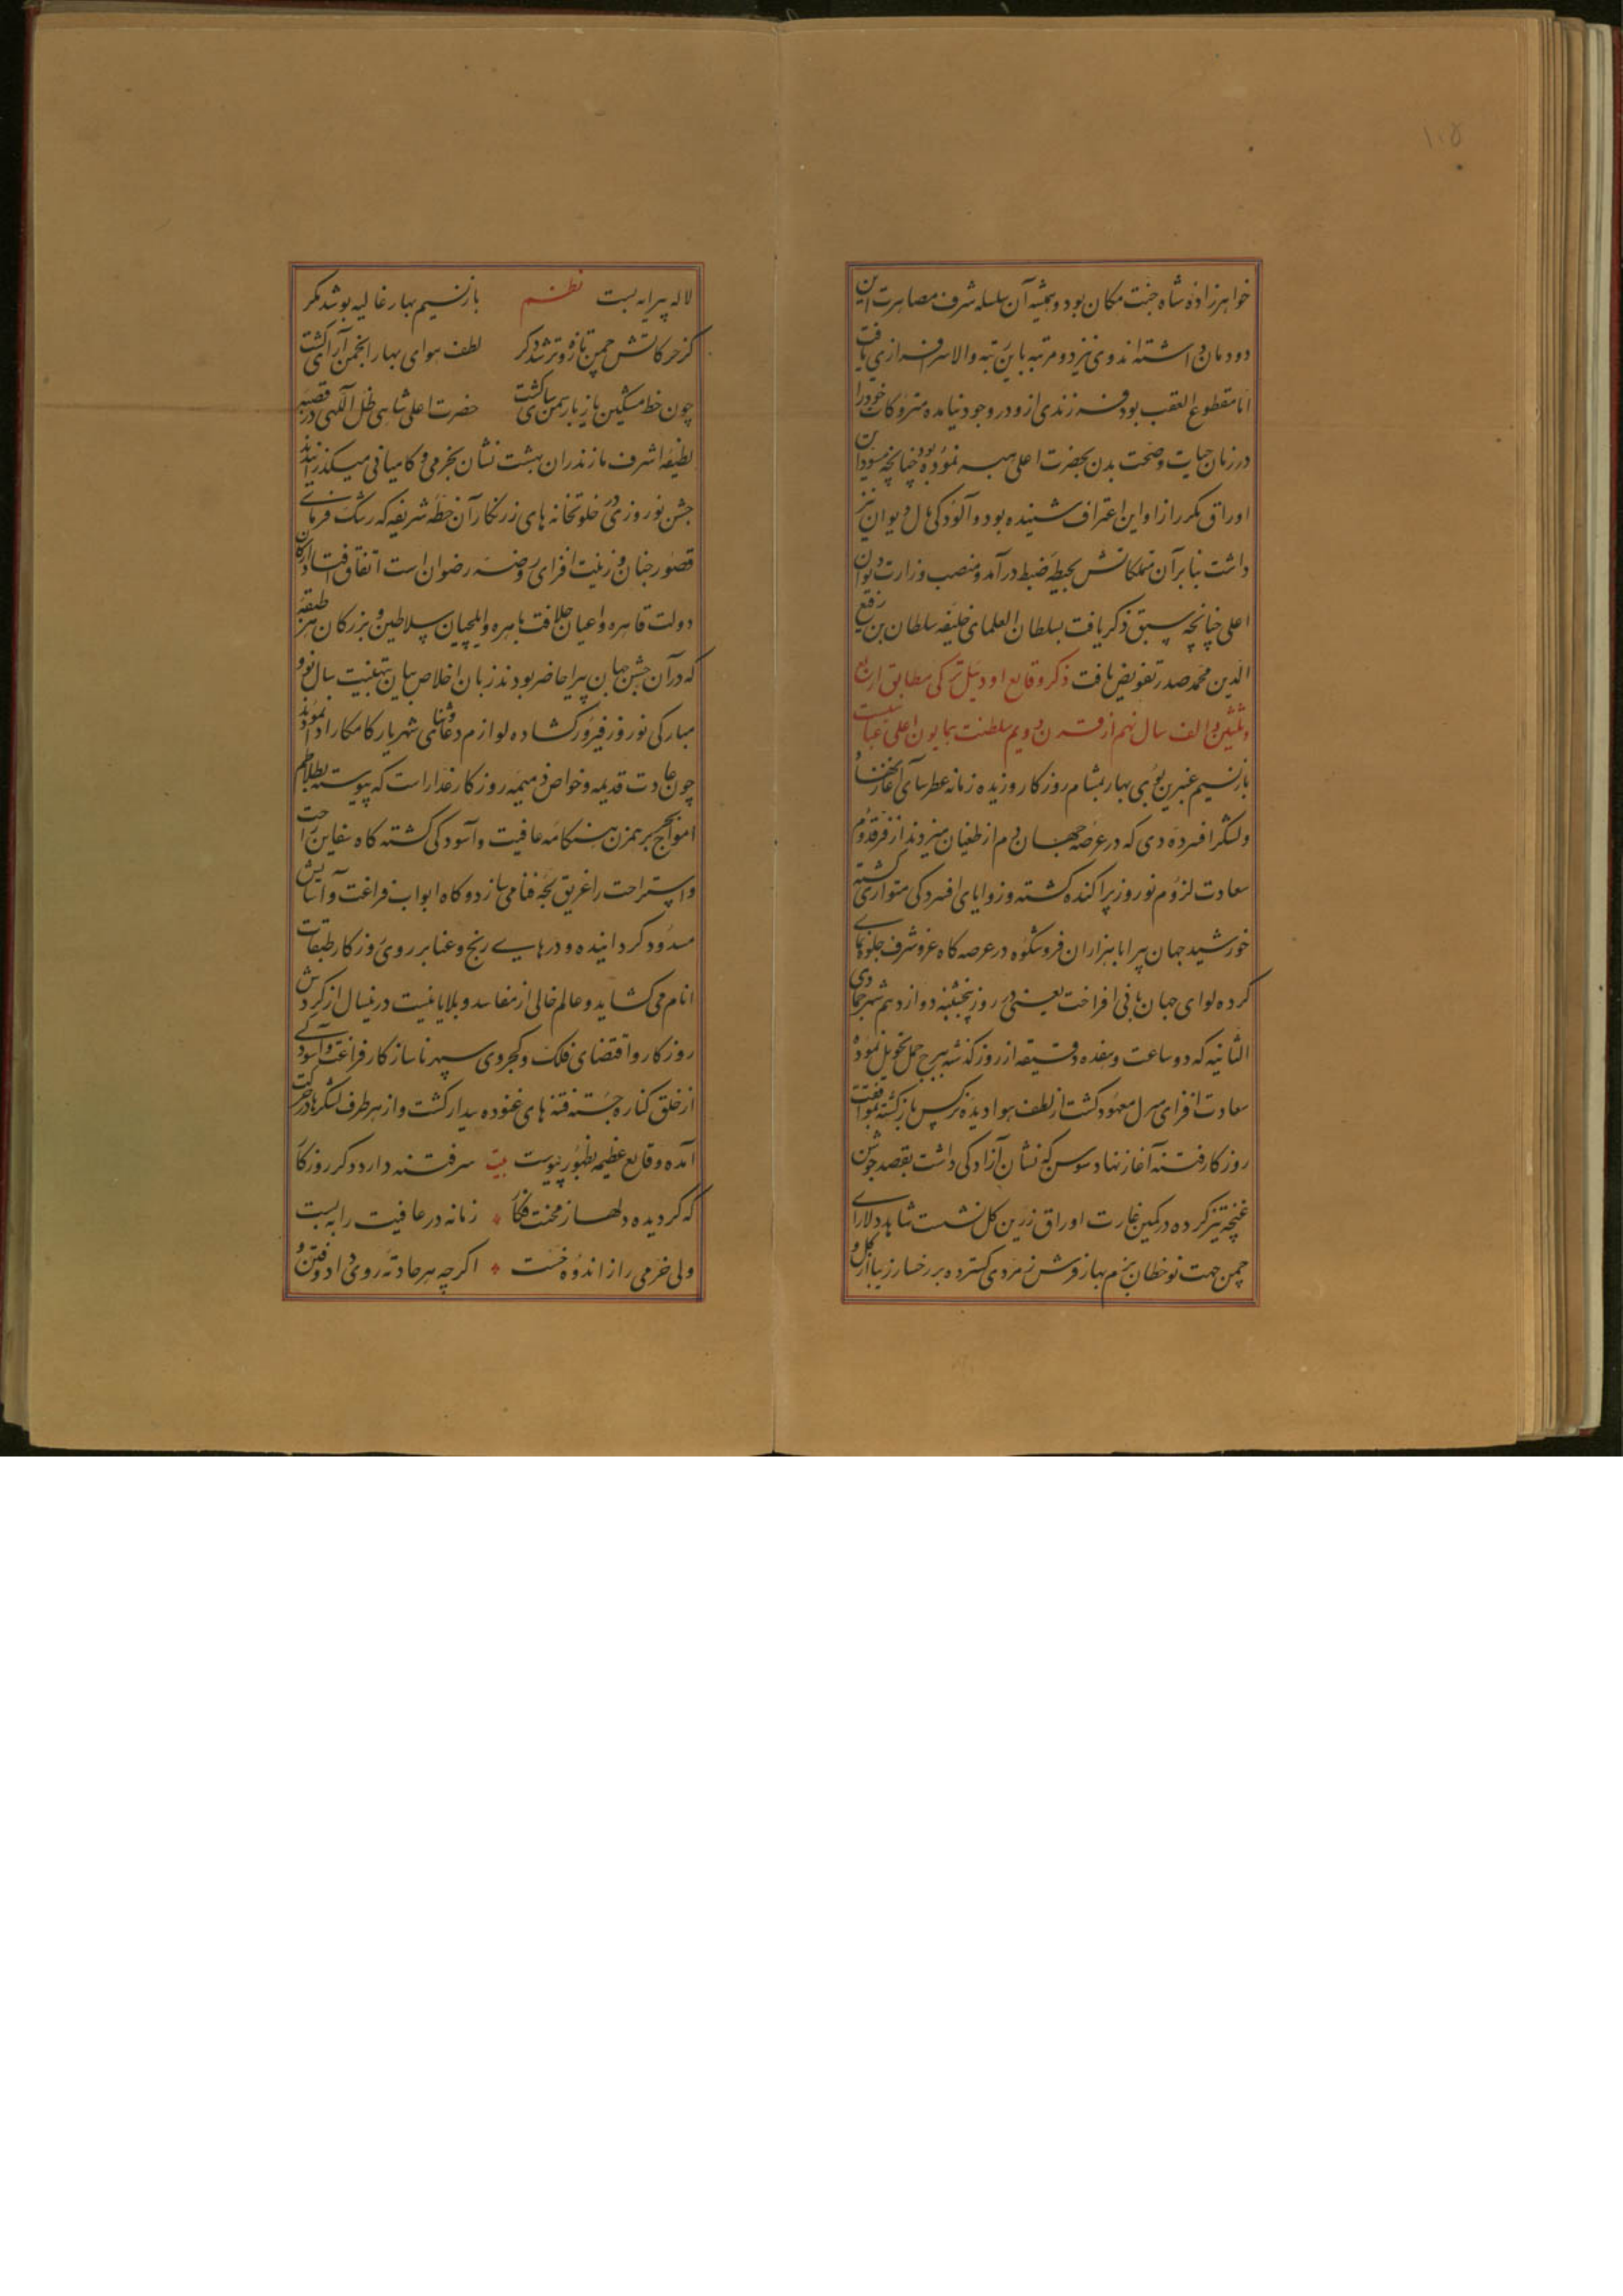 ۱۰۵
خواهرزاده شاه جنت مکان بود و همیشه آن سلسله شرف مصاهرت این
دودمان داشته‌اند و وی نیز دو مرتبه باین رتبه والا سرافرازی یافت
اما مقطوع العقب بود فرزندی ازو در وجود نیامده متروکات خود را
در زمان حیات و صحت بدن بحضرت اعلی هبه نموده بود چنانچه مسود این
اوراق مکرر ازو این اعتراف شنیده بود و آلودگی مال دیوان نیز
داشت بنا برآن متملکاتش بحیطه ضبط درآمد و منصب وزارت دیوان
اعلی چنانچه سبق ذکر یافت بسلطان العلمای خلیفه سلطان بن رفیع
الدین محمد صدر تفویض یافت ذکر وقایع اودئیل ترکی مطابق اربع
و ثلثین و الف سال نهم از قرن دویم سلطنت همایون اعلی عباسیست
باز نسیم عنبرین بوی بهار بمشام روزگار وزیده زمانه عطرسای آغاز نهاد
و لشکر افسرده دی که در عرصه جهان دم از طغیان میزدند از فر قدوم
سعادت لزوم نوروز پراکنده گشته و زوایای افسردگی متواری گشته
خورشید جهان پیرا با هزاران فر و شکوه در عرصه کاه عز و شرف جلوه نمای
کرده لوای جهان بانی افراخت یعنی در روز پنجشنبه دوازدهم شهر جمادی
الثانیه که دو ساعت و هفده دقیقه از روز گذشته ببرج حمل تحویل نموده
سعادت افزای منزل معهود گشت از لطف هوا دیده نرکس باز گشته بموافقت
روزکار فتنه آغاز نهاد سوسن که نشان آزادگی داشت بقصد جوشن
غنچه تیز کرده در کمین غارت اوراق زرین کل نشست شاهد دلارای
چمن جهت نوخطان بزم بهار فرش زمردی کسترده بر رخسار زیبا از کل و
لاله پیرایه بست نظم باز نسیم بهار غالیه بو شد مکر
کز حرکاتش چمن تازه و تر شد دکر لطف هوای بهار انجمن آرای گشت
چون خط مشکین یار یار سمن سای گشت حضرت اعلی شاهی ظل آلهی در قصبه
لطیفه اشرف مازندران بهشت نشان بخرمی و کامیابی میگذرانیدند
جشن نوروزی در خلوتخانه‌های زرنگار آن خطه شریفه که رشک فرمای
قصور جنان و زینت افزای روضه رضوان است اتفاق افتاد ارکان
دولت قاهره و اعیان خلافت باهره و ایلچیان سلاطین و بزرگان هر طبقه
که در آن جشن جهان پیرا حاضر بودند زبان اخلاص بیان بتهنیت سال نو و
مبارکی نوروز فیروز گشاده لوازم دعا و ثنای شهریار کامکار ادا نمودند
چون عادت قدیمه و خواص ذمیمه روزکار غدار است که پیوسته بتلاطم
امواج بحر برهمزن هنگامه عافیت و آسودگی گشته گاه سفاین راحت
و استراحت را غریق لجه فنا می‌سازد و گاه ابواب فراغت و آسایش
مسدود گردانیده و درهای رنج و عنا بر روی روزگار طبقات
انام می‌گشاید و عالم خالی از مفاسد و بلایا نیست درینسال از گردش
روزکار و اقتضای فلک و کجروی سپهر ناسازکار فراغت و آسودگی
از خلق کناره جسته فتنه‌های غنوده بیدار گشت و از هر طرف لشکرها در حرکت
آمده وقایع عظیمه بظهور پیوست بیت سر فتنه دارد دکر روزکار
که گردیده دلها ز محنت فکار زمانه در عافیت را ببست
ولی خرمی را ز اندوه خست اگرچه هر حادثه روی داد و فتن و